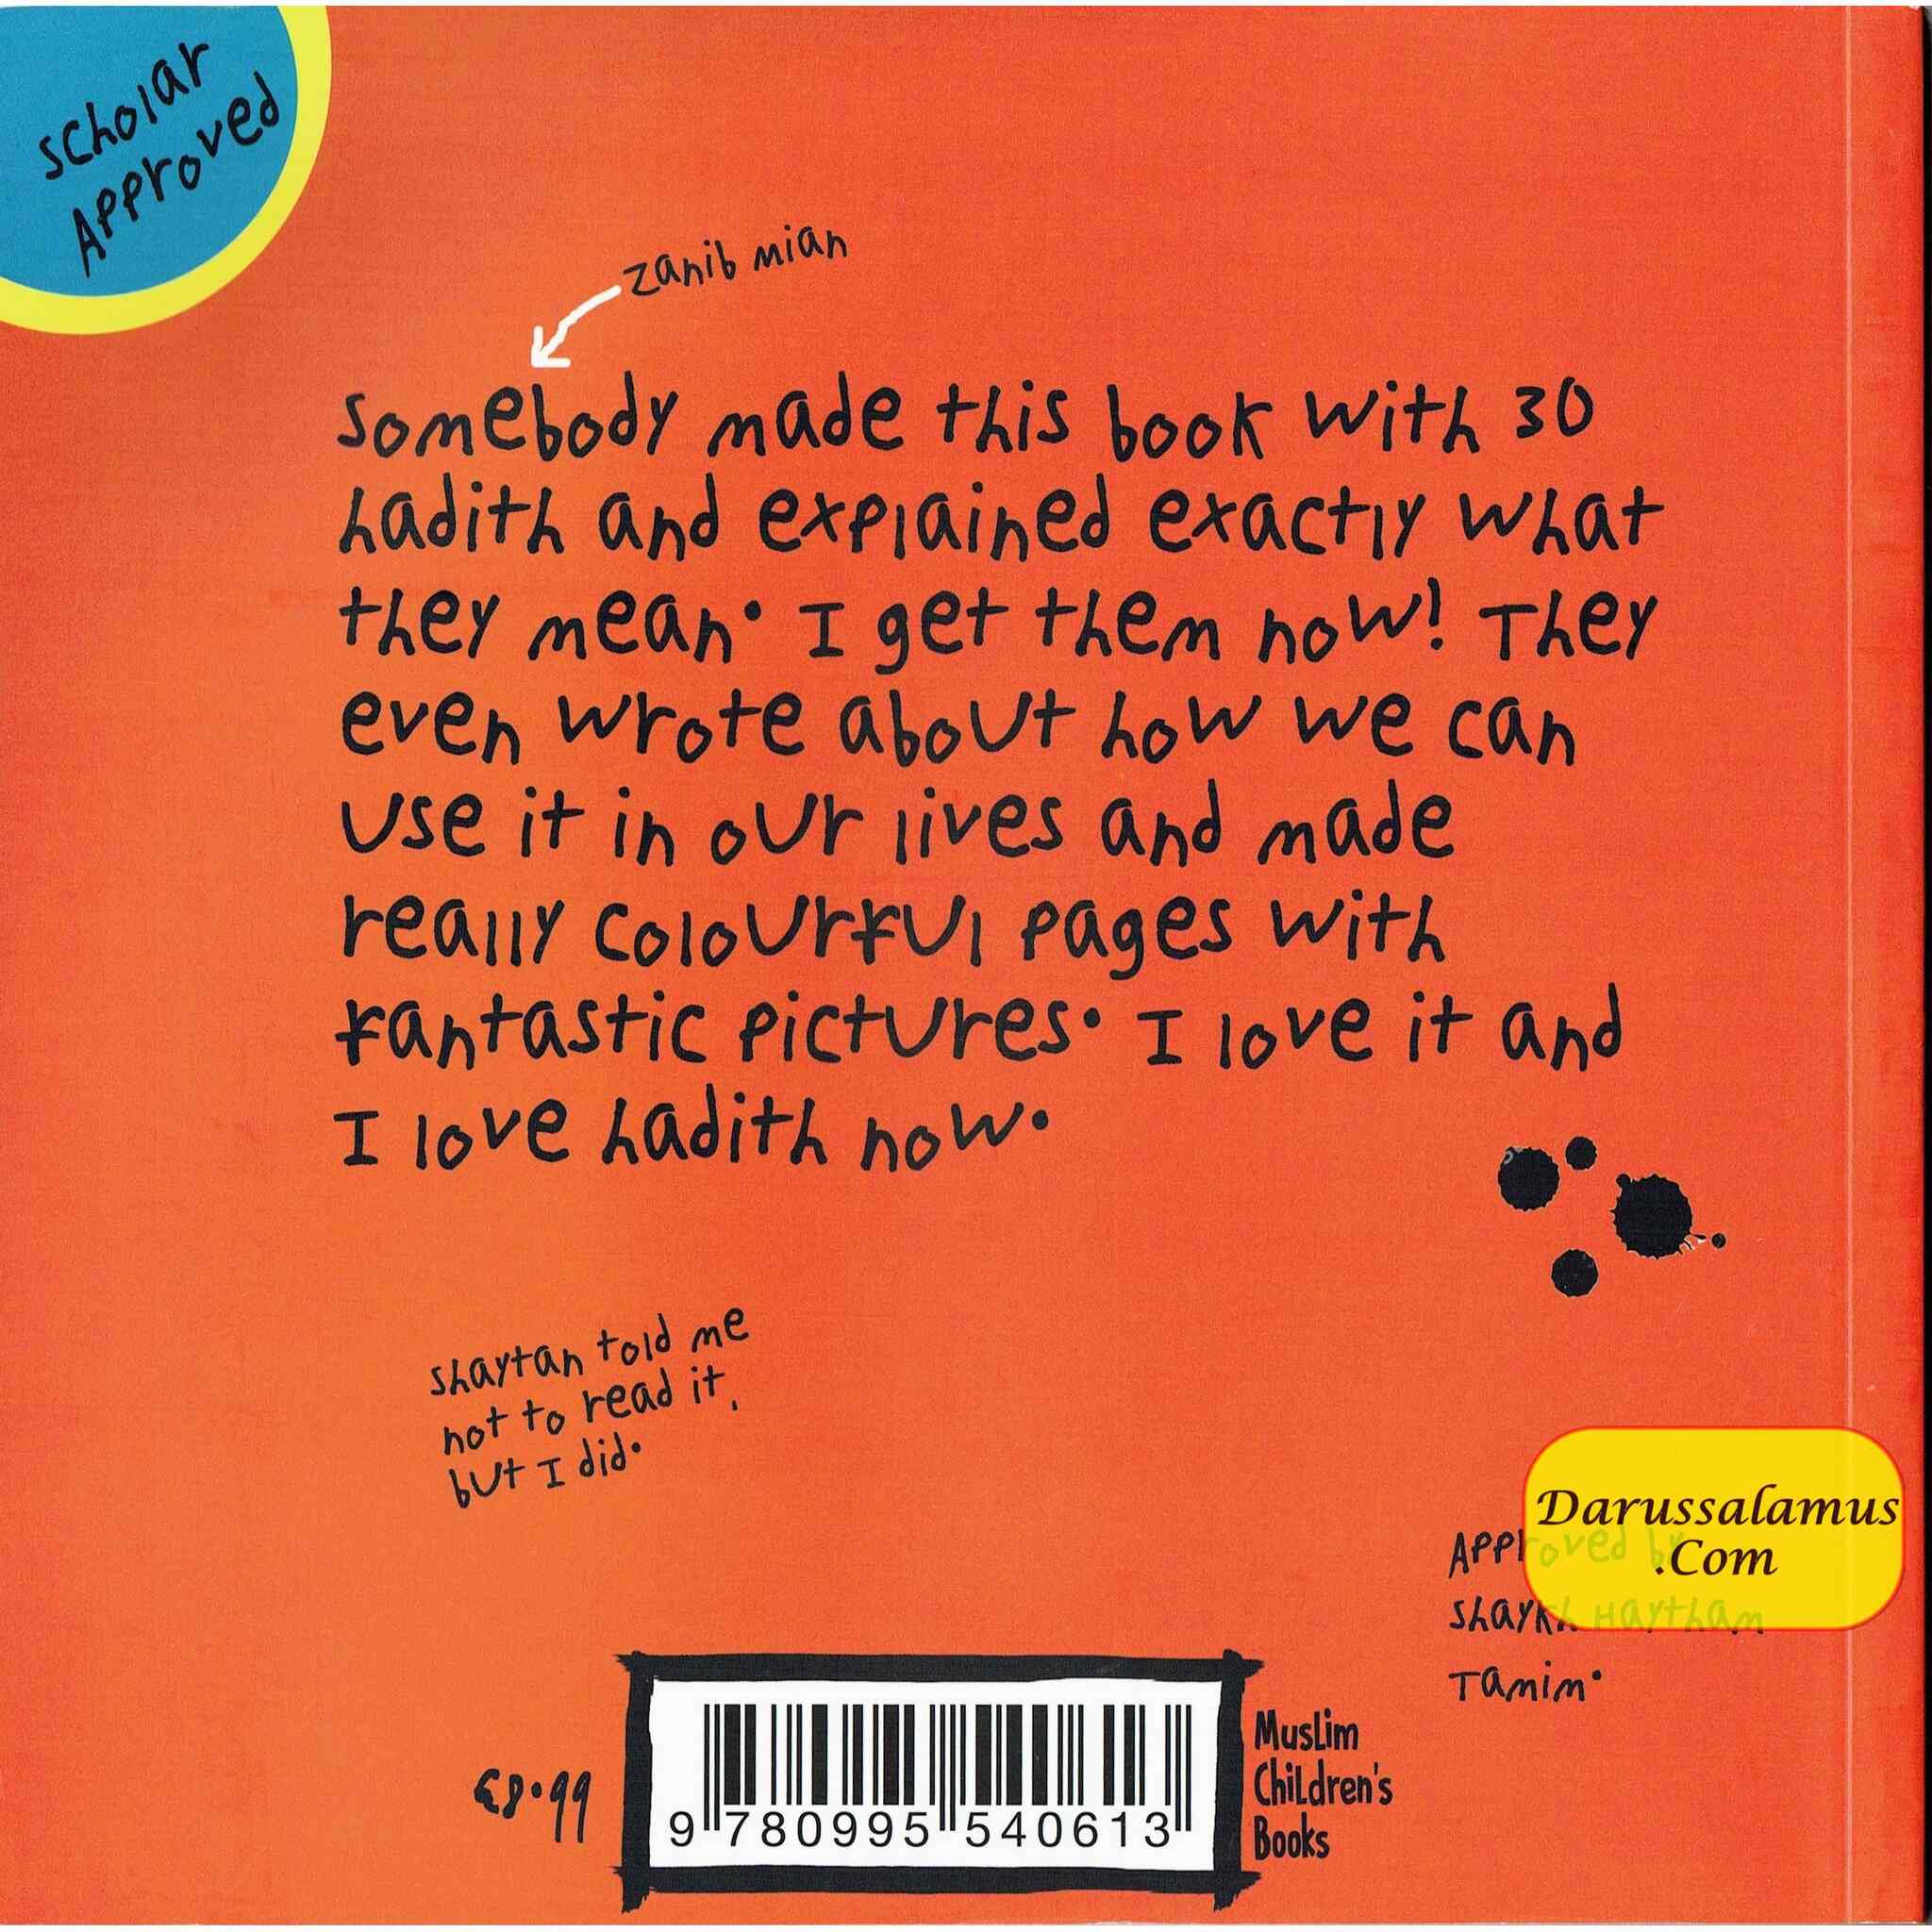 scholar
Approved
zanib mian
somebody made this book with 30
hadith and explained exactly what
they mean. I get them now! They
even wrote about how we can
use it in our lives and made
really colourful pages with
fantastic pictures. I love it and
I love hadith now.
shaytan told me
not to read it,
but I did.
Darussalamus
.Com
Approved by
shaykh Haytham
Tamim.
£8.99
9 780995 540613
Muslim
Children's
Books